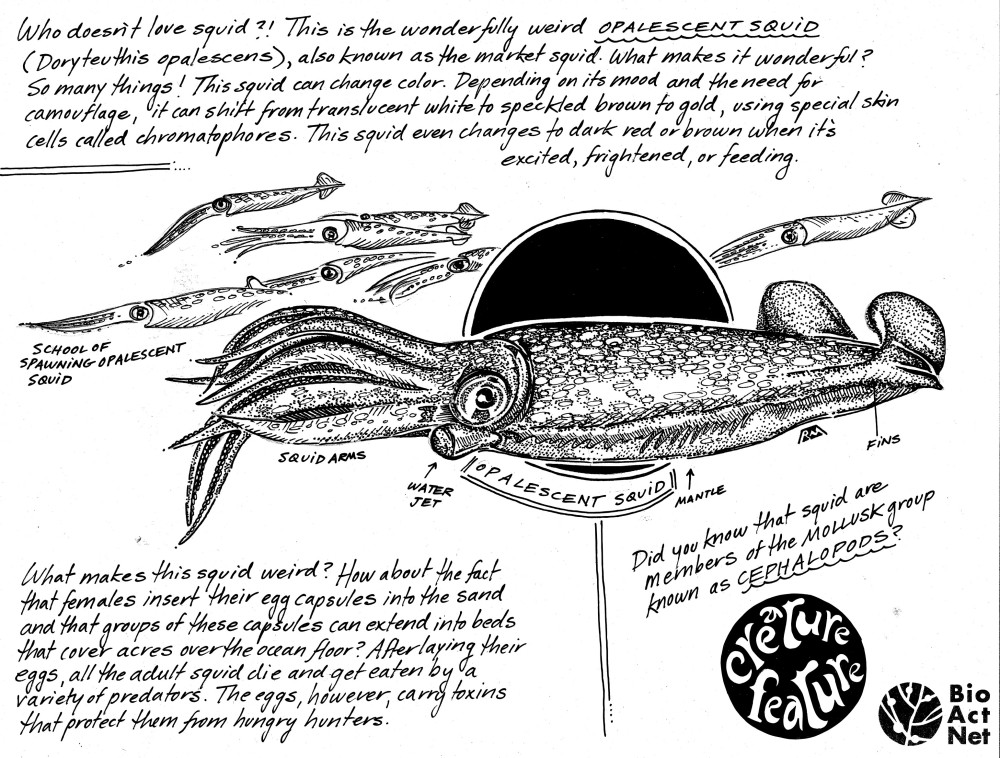 Who doesn't love squid?! This is the wonderfully weird OPALESCENT SQUID
(Doryteuthis opalescens), also known as the market squid. What makes it wonderful?
So many things! This squid can change color. Depending on its mood and the need for
camouflage, it can shift from translucent white to speckled brown to gold, using special skin
cells called chromatophores. This squid even changes to dark red or brown when it's
excited, frightened, or feeding.
SCHOOL OF
SPAWNING OPALESCENT
SQUID
SQUID ARMS
WATER
JET
OPALESCENT SQUID
MANTLE
FINS
RM
Did you know that squid are
members of the MOLLUSK group
known as CEPHALOPODS?
What makes this squid weird? How about the fact
that females insert their egg capsules into the sand
and that groups of these capsules can extend into beds
that cover acres over the ocean floor? After laying their
eggs, all the adult squid die and get eaten by a
variety of predators. The eggs, however, carry toxins
that protect them from hungry hunters.
creature
feature
Bio
Act
Net